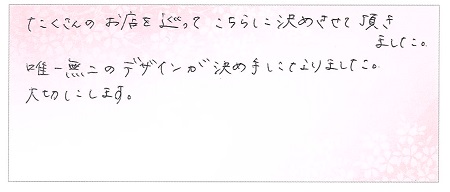 たくさんのお店を巡ってこちらに決めさせて頂き
ました。
唯一無二のデザインが決め手になりました。
大切にします。